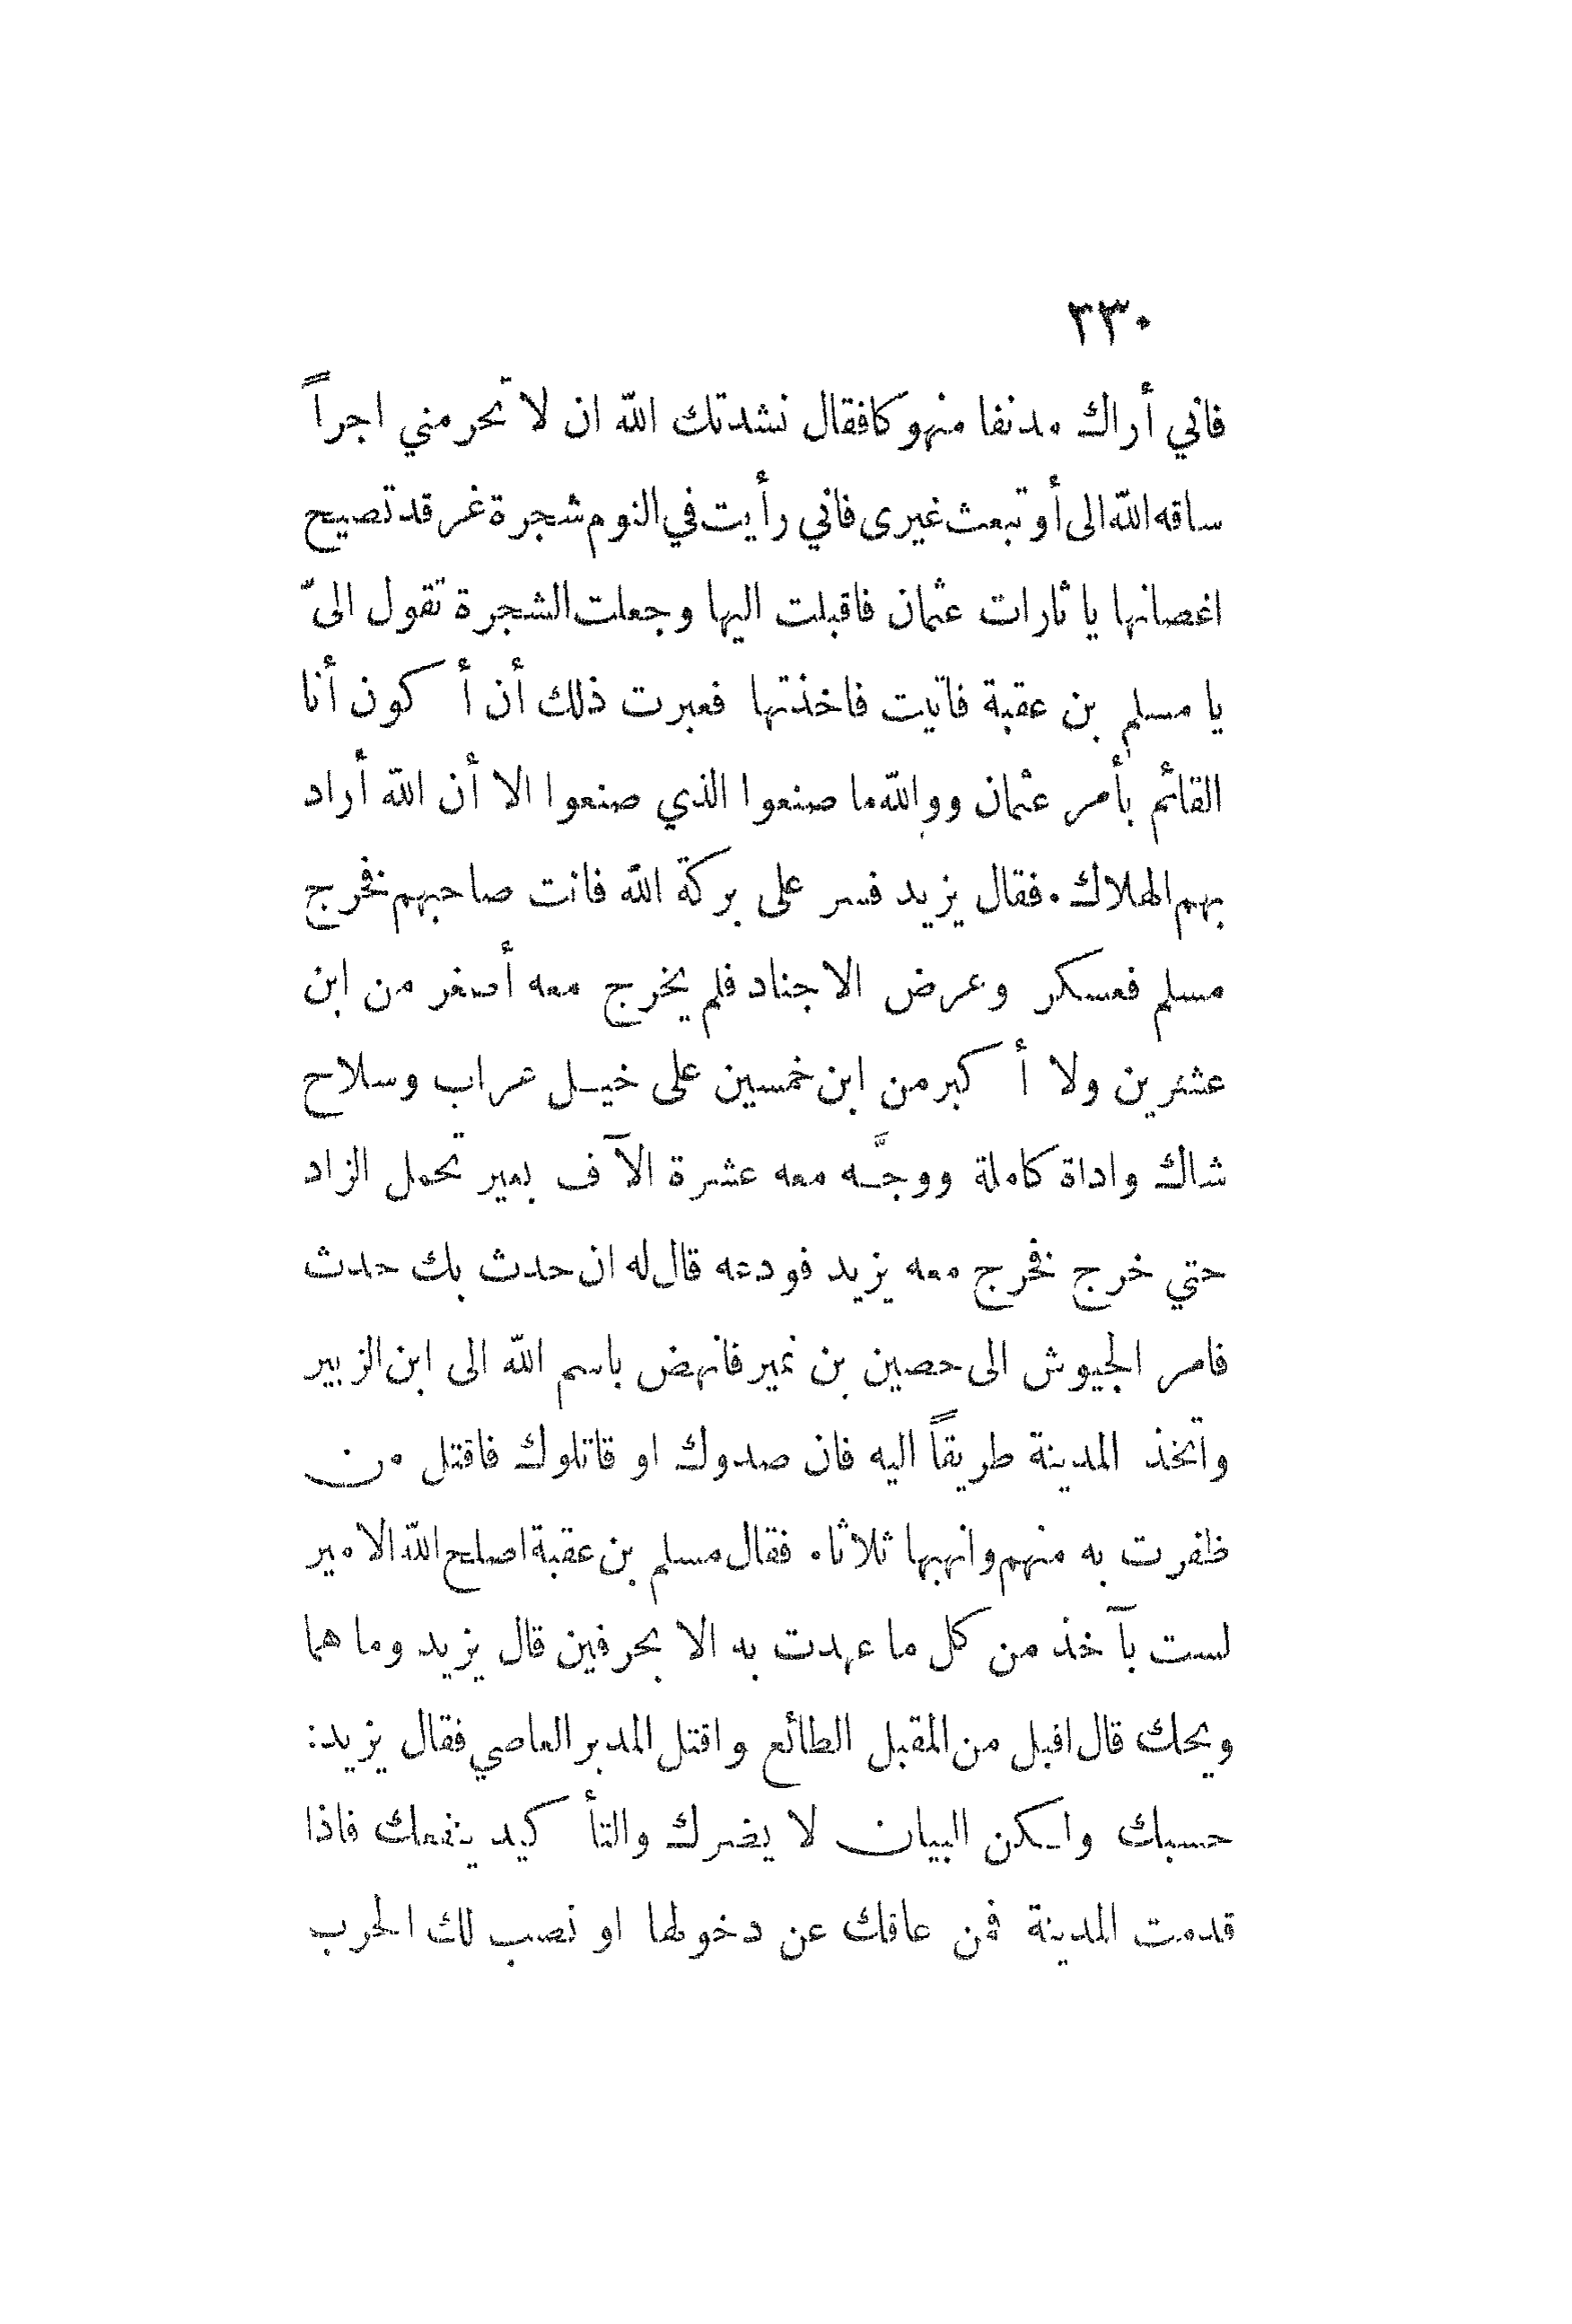 ٢٣٠
فاني أراك مدنفا منهوكا فقال نشدتك اللّه ان لا تحرمني اجراً
ساقه اللّه الى أو تبعث غيرى فاني رأيت في النوم شجرة غرقد تصيح
اغصانها يا ثارات عثمان فاقبلت اليها وجعلت الشجرة تقول الىّ
يا مسلم بن عقبة فاتيت فاخذتها فعبرت ذلك أن أكون أنا
القائم بأمر عثمان وواللّه ما صنعوا الذي صنعوا الا أن اللّه أراد
بهم الهلاك. فقال يزيد فسر على بركة اللّه فانت صاحبهم فخرج
مسلم فعسكر وعرض الاجناد فلم يخرج معه أصغر من ابن
عشرين ولا أكبر من ابن خمسين على خيل عراب وسلاح
شاك واداة كاملة ووجَّه معه عشرة الآف بعير تحمل الزاد
حتي خرج فخرج معه يزيد فودعه قال له ان حدث بك حدث
فامر الجيوش الى حصين بن نمير فانهض باسم اللّه الى ابن الزبير
واتخذ المدينة طريقاً اليه فان صدوك او قاتلوك فاقتل من
ظفرت به منهم وانهبها ثلاثا. فقال مسلم بن عقبة اصلح اللّه الامير
لست بآخذ من كل ما عهدت به الا بحرفين قال يزيد وما هما
ويحك قال اقبل من المقبل الطائع واقتل المدبر العاصي فقال يزيد:
حسبك ولكن البيان لا يضرك والتأكيد ينفعك فاذا
قدمت المدينة فمن عاقك عن دخولها او نصب لك الحرب